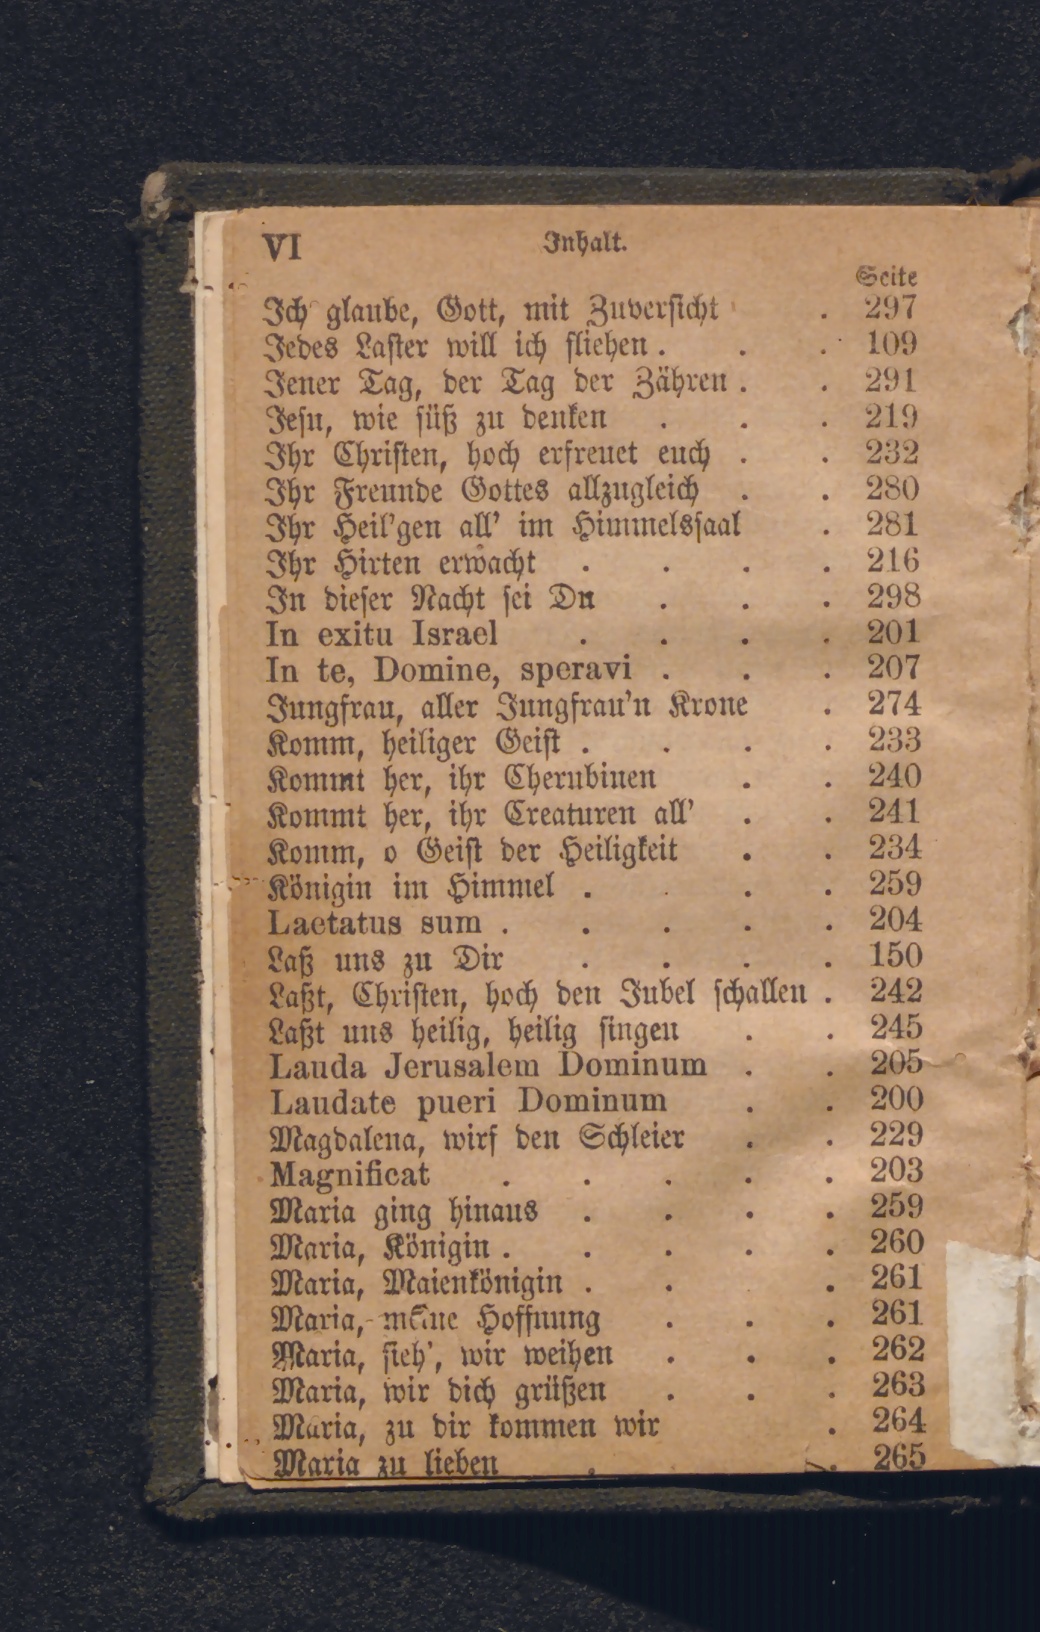 VI Inhalt.
Seite
Ich glaube, Gott, mit Zuversicht . 297
Jedes Laster will ich fliehen . . . 109
Jener Tag, der Tag der Zähren . . 291
Jesu, wie süß zu denken . . . 219
Ihr Christen, hoch erfreuet euch . . 232
Ihr Freunde Gottes allzugleich . . 280
Ihr Heil'gen all' im Himmelssaal . 281
Ihr Hirten erwacht . . . . 216
In dieser Nacht sei Du . . . 298
In exitu Israel . . . . 201
In te, Domine, speravi . . . 207
Jungfrau, aller Jungfrau'n Krone . 274
Komm, heiliger Geist . . . . 233
Kommt her, ihr Cherubinen . . 240
Kommt her, ihr Creaturen all' . . 241
Komm, o Geist der Heiligkeit . . 234
Königin im Himmel . . . . 259
Laetatus sum . . . . . 204
Laß uns zu Dir . . . . 150
Laßt, Christen, hoch den Jubel schallen . 242
Laßt uns heilig, heilig singen . . 245
Lauda Jerusalem Dominum . . 205
Laudate pueri Dominum . . 200
Magdalena, wirf den Schleier . . 229
Magnificat . . . . . 203
Maria ging hinaus . . . . 259
Maria, Königin . . . . . 260
Maria, Maienkönigin . . . 261
Maria, meine Hoffnung . . . 261
Maria, sieh', wir weihen . . . 262
Maria, wir dich grüßen . . . 263
Maria, zu dir kommen wir . 264
Maria zu lieben . . 265